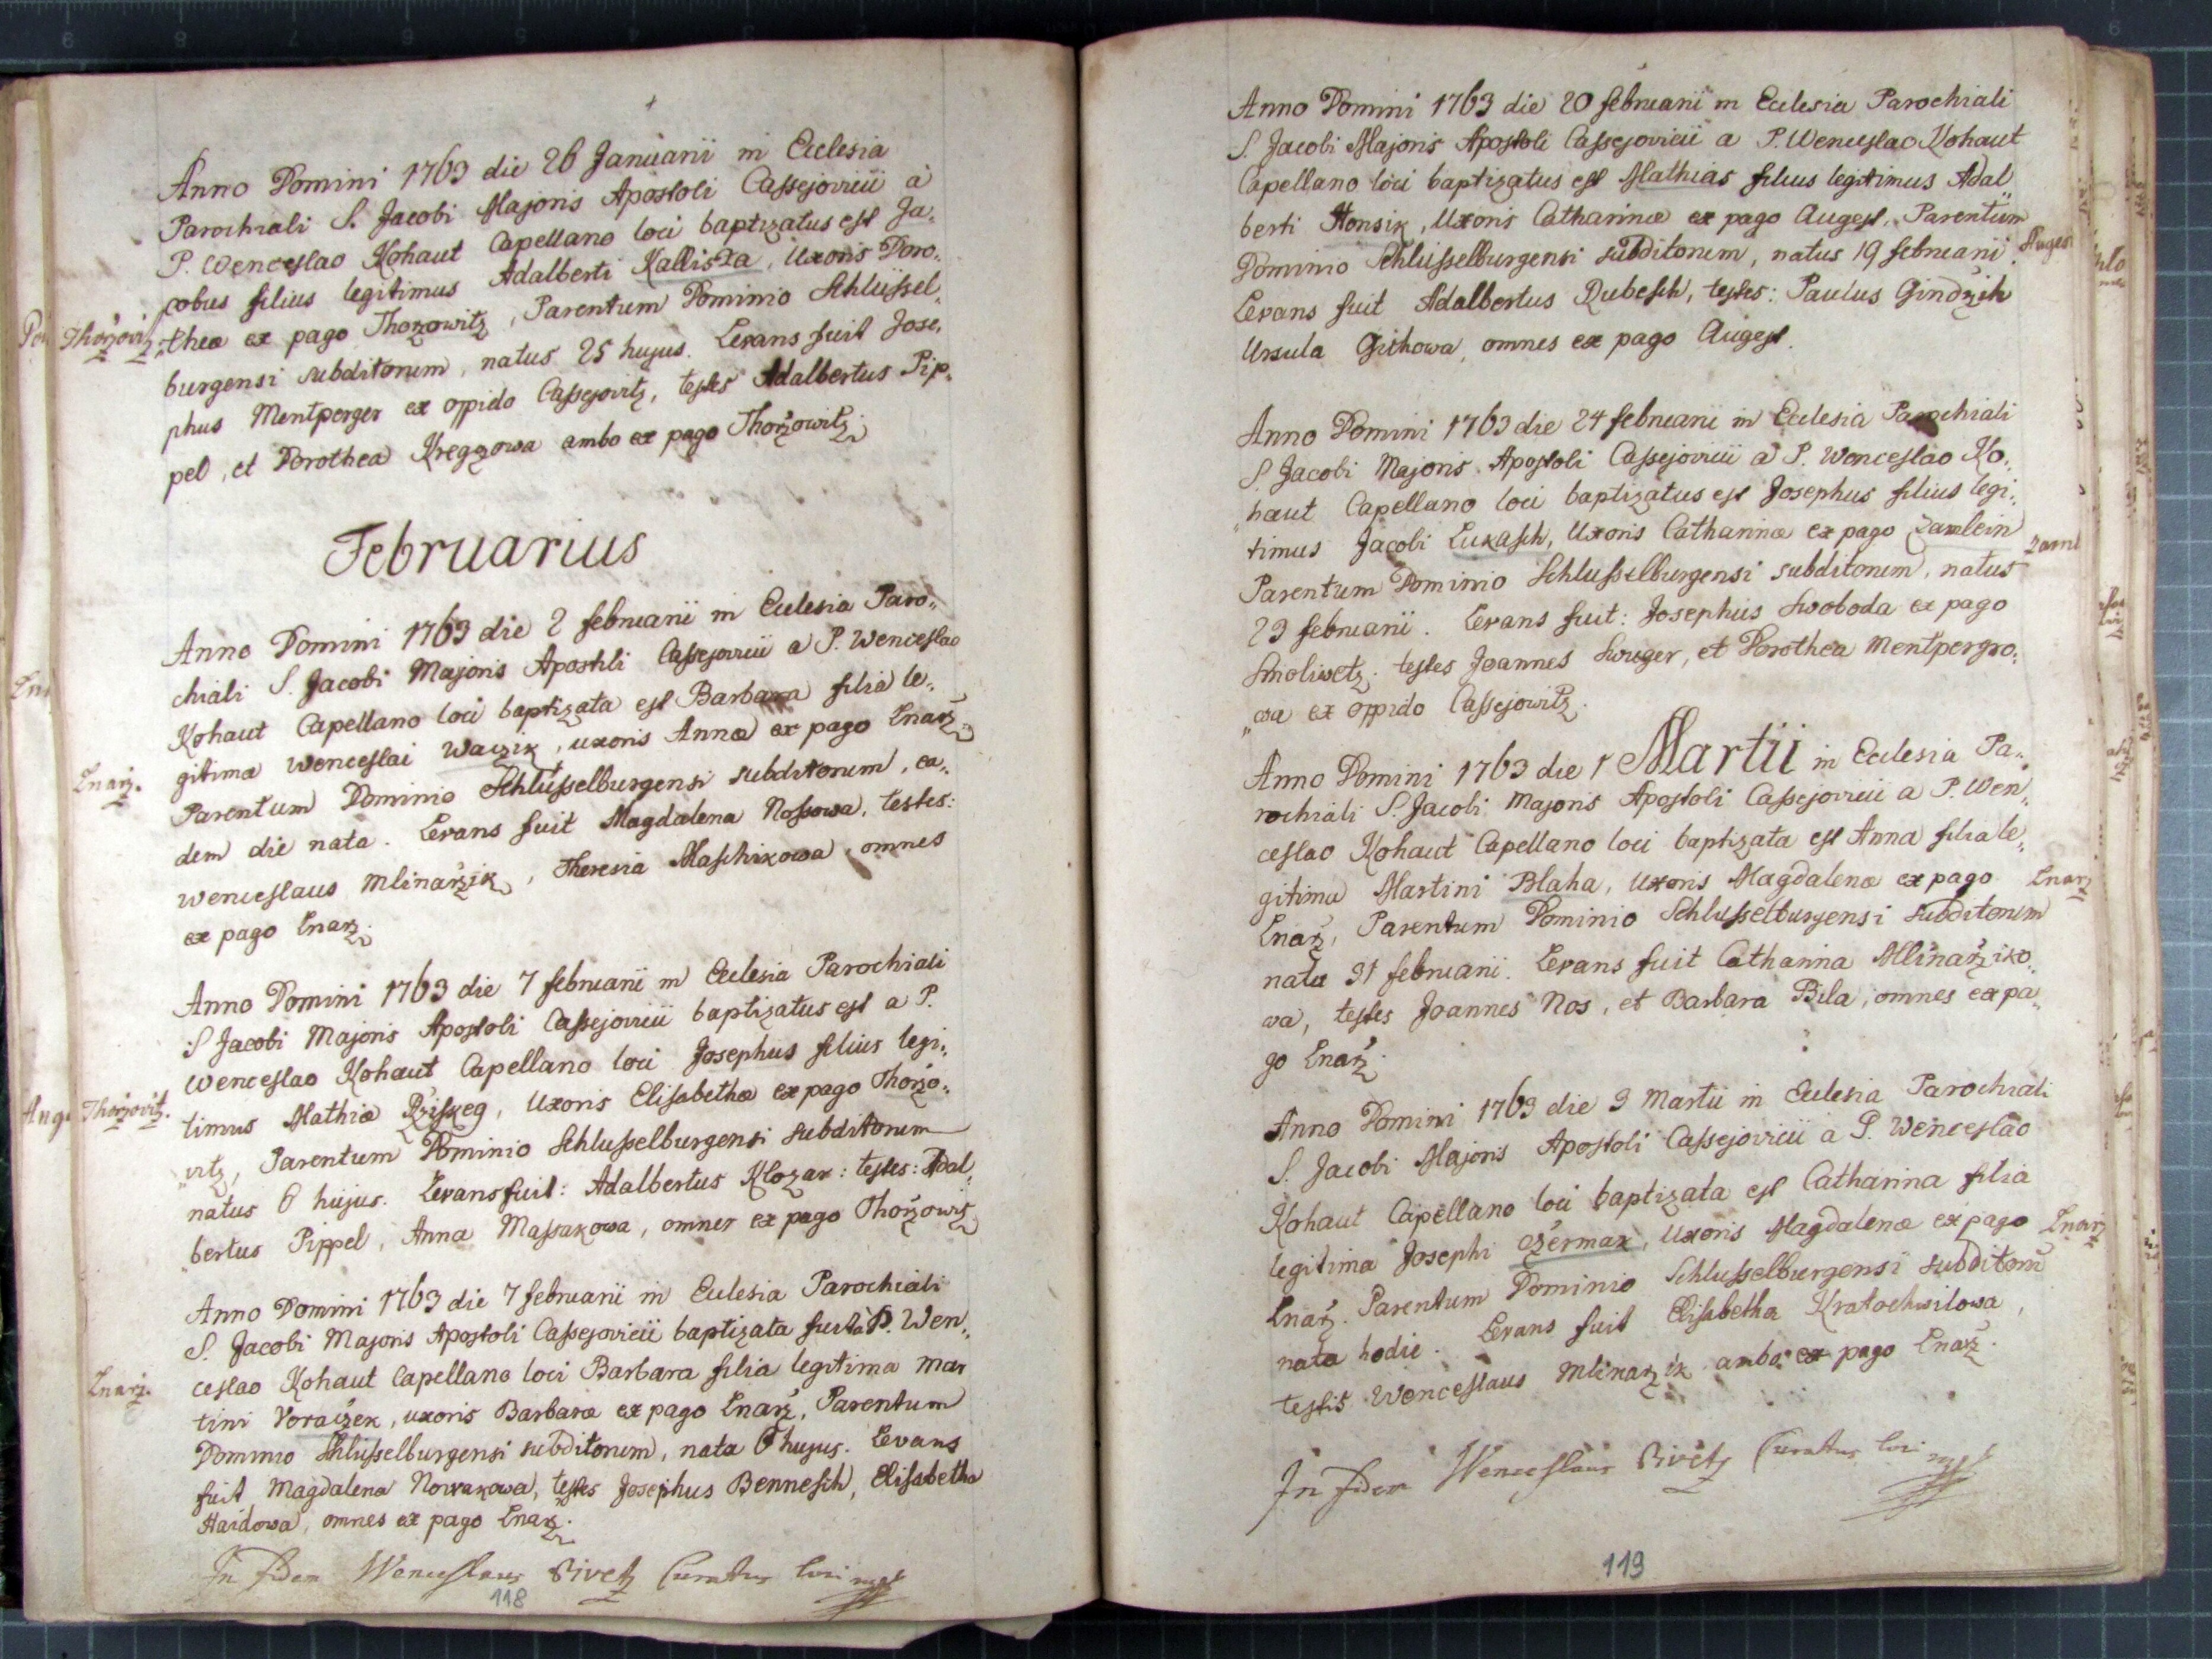 Anno Domini 1763 die 26 Januarii in Ecclesia
Parochiali S. Jacobi Majoris Apostoli Cassejovicii a
P. Wenceslao Kohaut Capellano loci baptizatus est Ja„
cobus filius legitimus Adalberti Kalliska, Uxoris Doro„
„theæ ex pago Thorzowitz, Parentum Dominio Schlüssel„
burgensi subditorum, natus 25 hujus. Levans fuit Jose„
phus Mentperger ex oppido Cassejovitz, testes Adalbertus Pip„
pel, et Dorothea Kregzowa ambo ex pago Thorzowitz.
Thorzovitz
Februarius
Anno Domini 1763 die 2 februarii in Ecclesia Paro„
chiali S. Jacobi Majoris Apostoli Cassejovicii a P. Wenceslao
Kohaut Capellano loci baptizata est Barbara filia le„
gitima Wenceslai Waczik, uxoris Annæ ex pago Lnarz
Lnarz.
Parentum Dominio Schlüsselburgensi subditorum, ea„
dem die nata. Levans fuit Magdalena Nossowa, testes:
Wenceslaus Mlinarzik, Theresia Maschikowa, omnes
ex pago Lnarz.
Anno Domini 1763 die 7 februarii in Ecclesia Parochiali
S Jacobi Majoris Apostoli Cassejovicii baptizatus est a P.
Wenceslao Kohaut Capellano loci Josephus filius legi„
timus Mathiæ Rziskeg, Uxoris Elisabethæ ex pago Thorzo„
Thorzovitz.
„vitz, Parentum Dominio Schlusselburgensi subditorum
natus 6 hujus. Levans fuit: Adalbertus Klozar: testes: Adal„
bertus Pippel, Anna Massakowa, omnes ex pago Thorzowitz
Anno Domini 1763 die 7 februarii in Ecclesia Parochiali
S. Jacobi Majoris Apostoli Cassejovicii baptizata fuit a P. Wen„
ceslao Kohaut Capellano loci Barbara filia legitima Mar
Lnarz.
tini Voraczek, uxoris Barbaræ ex pago Lnarz, Parentum
Dominio Schlüsselburgensi subditorum, nata 6 hujus. Levans
fuit Magdalena Nowakowa, testes Josephus Bennesch, Elisabetha
Haidowa, omnes ex pago Lnarz.
In fidem Wenceslaus Sivetz Curatus loci
118
Anno Domini 1763 die 20 februarii in Ecclesia Parochiali
S. Jacobi Majoris Apostoli Cassejovicii a P. Wenceslao Kohaut
Capellano loci baptizatus est Mathias filius legitimus Adal„
berti Honsik, Uxoris Catharinæ ex pago Augest, Parentum
Dominio Schlüsselburgensi subditorum, natus 19 februarii.
Auges
Levans fuit Adalbertus Dubesch, testes: Paulus Gindrzich
Ursula Gichowa, omnes ex pago Augest.
Anno Domini 1763 die 24 februarii in Ecclesia Parochiali
S. Jacobi Majoris Apostoli Cassejovicii a P. Wenceslao Ko„
„haut Capellano loci baptizatus est Josephus filius legi„
timus Jacobi Lukasch, Uxoris Catharinæ ex pago Zamlein
Zaml
Parentum Dominio Schlusselburgensi subditorum, natus
23 februarii. Levans fuit: Josephus Swoboda ex pago
Smoliwetz. testes Joannes Swuger, et Dorothea Mentpergro„
„wa ex oppido Cassejowitz.
Anno Domini 1763 die 1 Martii in Ecclesia Pa„
rochiali S. Jacobi Majoris Apostoli Cassejovicii a P. Wen„
ceslao Kohaut Capellano loci baptizata est Anna filia le„
gitima Martini Blaha, Uxoris Magdalenæ ex pago
Lnarz
Lnarz, Parentum Dominio Schlusselburgensi subditorum
nata 31 februarii. Levans fuit Catharina Mlinarziko„
wa, testes Joannes Nos, et Barbara Bila, omnes ex pa„
go Lnarz.
Anno Domini 1763 die 3 Martii in Ecclesia Parochiali
S. Jacobi Majoris Apostoli Cassejovicii a P. Wenceslao
Kohaut Capellano loci baptizata est Catharina filia
legitima Josephi Czermak, Uxoris Magdalenæ ex pago
Lnarz
Lnarz. Parentum Dominio Schlusselburgensi subditorū
nata hodie. Levans fuit Elisabetha Kratochwilowa,
testis Wenceslaus Mlinarzik ambo ex pago Lnarz.
In fidem Wenceslaus Sivetz Curatus loci
119